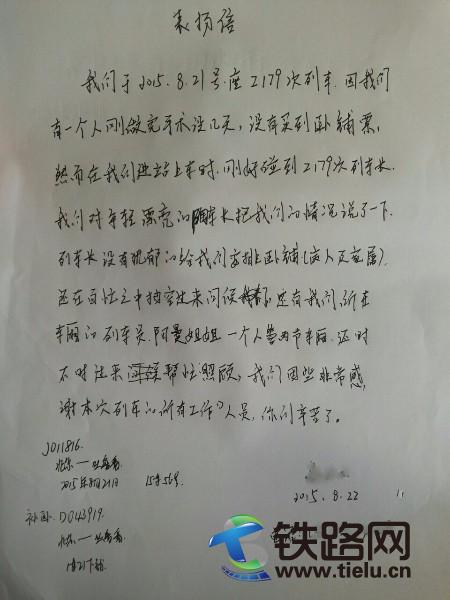 表扬信
我们于2015.8.21号座Z179次列车.因我们
有一个人刚做完手术没几天,没有买到卧铺票,
然而在我们进站上车时.刚好碰到Z179次列车长.
我们对年轻漂亮的车长把我们的情况说了一下.
列车长没有犹郁的给我们安排卧铺(病人及家属).
还在百忙之中抽空过来问候 还有我们所在
车厢的列车员.阿曼姐姐一个人 两节车厢.还时
不时过来 帮忙照顾,我们因些非常感
谢本次列车的所有工作人员,你们辛苦了。
J011816.
北京—
2015年8月21日 15车56号
2015.8.22
补卧:D043919.
北京—
铁路网
www.tielu.cn